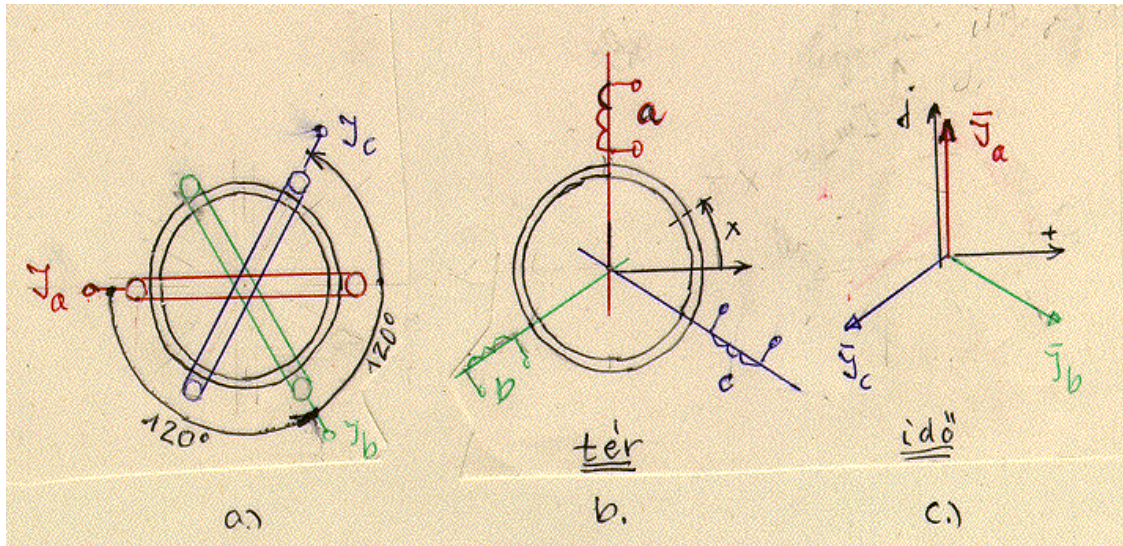 J_c
J_a
120°
120°
J_b
a.)
a
x
b
c
tér
b.
j
J̄_a
+
J̄_c
J̄_b
idő
c.)